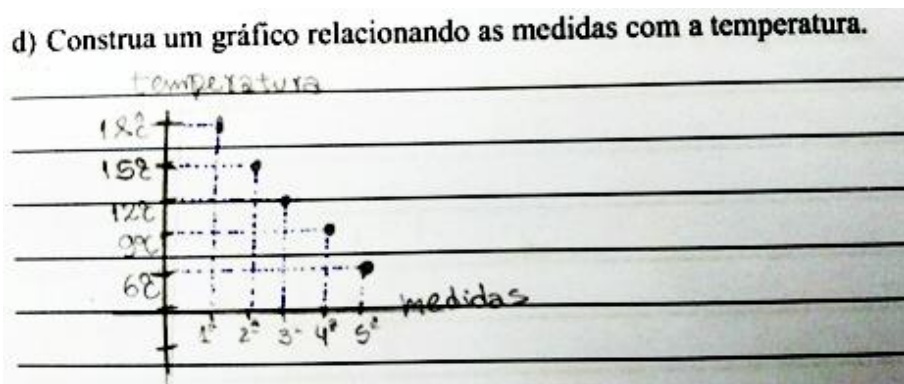 d) Construa um gráfico relacionando as medidas com a temperatura.
temperatura
18º
15º
12º
9º
6º
medidas
1ª 2ª 3ª 4ª 5ª